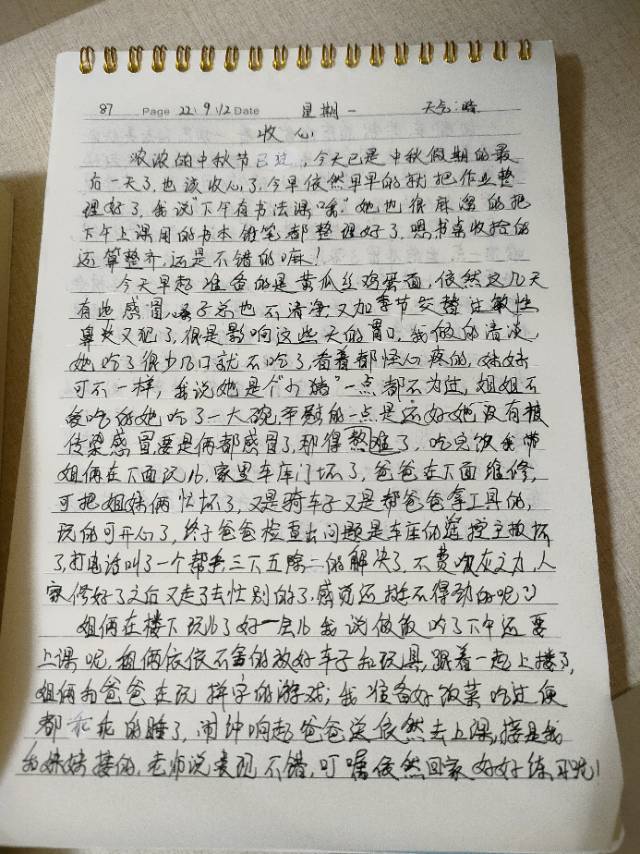 87 Page 22\9\12 Date 星期一 天气:晴
收心
浓浓的中秋节已过,今天已是中秋假期的最
后一天了,也该收心了,今早依然早早的就把作业整
理好了,我说"下午有书法课哦"她也很麻溜的把
下午上课用的书本铅笔都整理好了,嗯书桌收拾的
还算整齐,还是不错的嘛!
今天早起准备的是黄瓜丝鸡蛋面,依然这几天
有些感冒,鼻子总也不清净,又加季节交替过敏性
鼻炎又犯了,很是影响这些天的胃口,我做的清淡,
她吃了很少几口就不吃了,看着都怪心疼的,妹妹
可不一样,我说她是个"小猪"一点都不为过,姐姐不
爱吃的她吃了一大碗,平慰的一点是还好她没有被
传染感冒,要是俩都感冒了,那得熬难了,吃完饭我带
姐俩在下面玩儿,家里车库门坏了,爸爸在下面维修,
可把姐妹俩忙坏了,又是骑车子又是帮爸爸拿工具的,
玩的可开心了,终于爸爸检查出问题是车库的遥控主板坏
了,打电话叫了一个帮手三下五除二的解决了,不费吹灰之力,人
家修好了之后又走了去忙别的了,感觉还挺不得劲的呢
姐俩在楼下玩儿了好一会儿我说做饭吃了下午还要
上课呢,姐俩依依不舍的放好车子和玩具,跟着一起上楼了,
姐俩和爸爸在玩拼字的游戏,我准备好饭菜吃过便
都乖乖的睡了,闹钟响起爸爸送依然去上课,接是我
和妹妹接的,老师说表现不错,叮嘱依然回家好好练习呢!